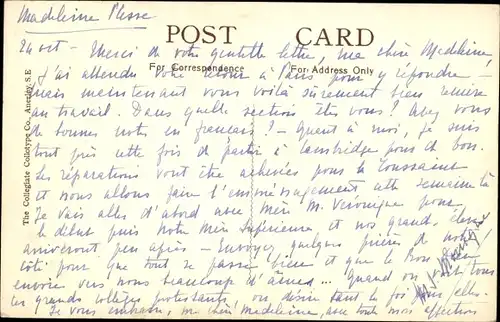 Madeleine Plesse
POST CARD
For Correspondence For Address Only
The Collegiate Collotype Co., Anerley, S.E
24 oct - Merci de votre gentille lettre, ma chère Madeleine,
J'ai attendu votre retour à pour y répondre -
mais maintenant vous voilà sûrement bien remise
au travail. Dans quelle section êtes vous? Avez vous
de bonnes notes en français? - Quant à moi, je suis
tout près cette fois de partir à Cambridge pour de bon.
Les réparations vont être achevées pour la Toussaint
et nous allons faire l'emménagement cette semaine là
Je vais aller d'abord avec Mère M. Véronique pour
le début puis Notre Mère Supérieure et nos grands élèves
arriveront peu après - Envoyez quelques prières de votre
côté pour que tout se passe bien et que le Bon Dieu
envoie vers nous beaucoup d'âmes... Quand on voit tous
les grands collèges protestants on désire tant la foi pour elles.
Je vous embrasse, ma chère Madeleine, avec toute mon affection